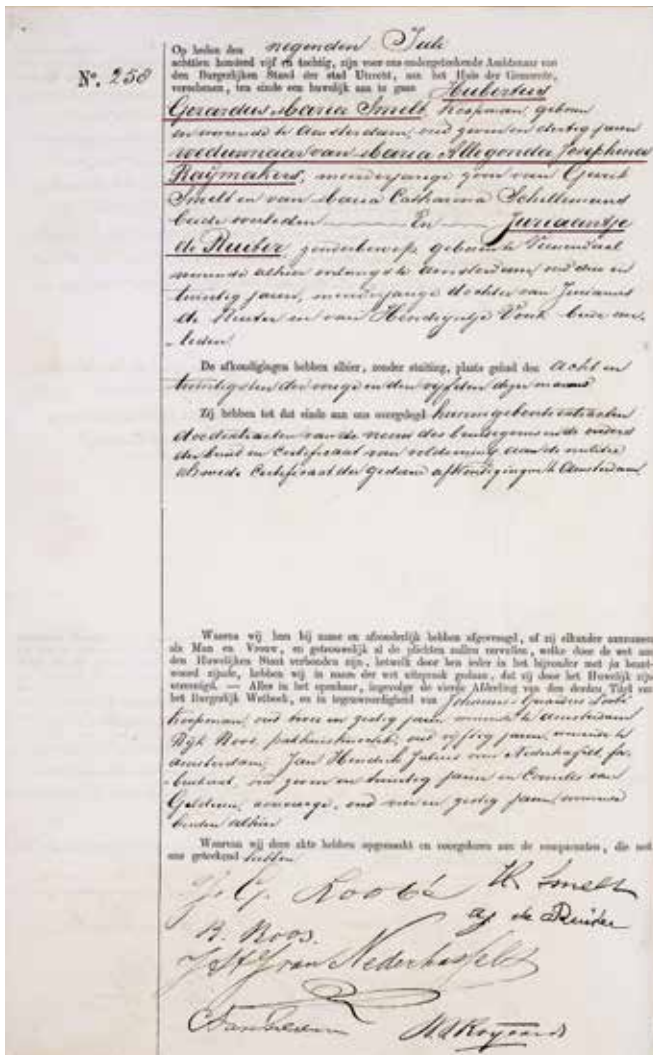 Op heden den negenden Juli
achttien honderd vijf en tachtig, zijn voor ons ondergeteekende Ambtenaar van
den Burgerlijken Stand der stad Utrecht, aan het Huis der Gemeente,
Nº. 258
verschenen, ten einde een huwelijk aan te gaan Hubertus
Gerardus Maria Smelt, koopman, geboren
en wonende te Amsterdam, oud zeven en dertig jaren
weduwnaar van Maria Allegonda Josephina
Raymakers, meerderjarige zoon van Gerrit
Smelt en van Maria Catharina
beide overleden En Juriaantje
de Ruiter, zonder beroep, geboren te Veenendaal
wonende alhier onlangs te Amsterdam, oud drie en
twintig jaren, meerderjarige dochter van
de Ruiter en van Hendrijntje Vonk beide over-
leden.
De afkondigingen hebben alhier, zonder stuiting, plaats gehad den acht en
twintigsten der vorige en den vijfden dezer maand
Zij hebben tot dat einde aan ons overgelegd hunne geboorteextracten
doodextracten van de vrouw des bruidegoms en de ouders
der bruid en certificaat van voldoening aan de militie
alsmede certificaat der gedane afkondigingen te Amsterdam
Waarna wij hen bij name en afzonderlijk hebben afgevraagd, of zij elkander aannemen
als Man en Vrouw, en getrouwelijk al de plichten zullen vervullen, welke door de wet aan
den Huwelijken Staat verbonden zijn, hetwelk door hen ieder in het bijzonder met ja beant-
woord zijnde, hebben wij in naam der wet uitspraak gedaan, dat zij door het Huwelijk zijn
vereenigd. — Alles in het openbaar, ingevolge de vierde Afdeeling van den derden Titel van
het Burgerlijk Wetboek, en in tegenwoordigheid van Johannes Gerardus
koopman, oud twee en zestig jaren wonende te Amsterdam
Roos, oud vijftig jaren, wonende te
Amsterdam, Jan Hendrik Julius van Nederhasselt, fa-
brikant, oud zeven en twintig jaren en Cornelis van
Gelderen, oud vier en zestig jaren, wonende
beiden alhier
Waarvan wij deze akte hebben opgemaakt en voorgelezen aan de comparanten, die met
ons geteekend hebben
J. G. H Smelt
de Ruiter
R. Roos.
van Nederhasselt